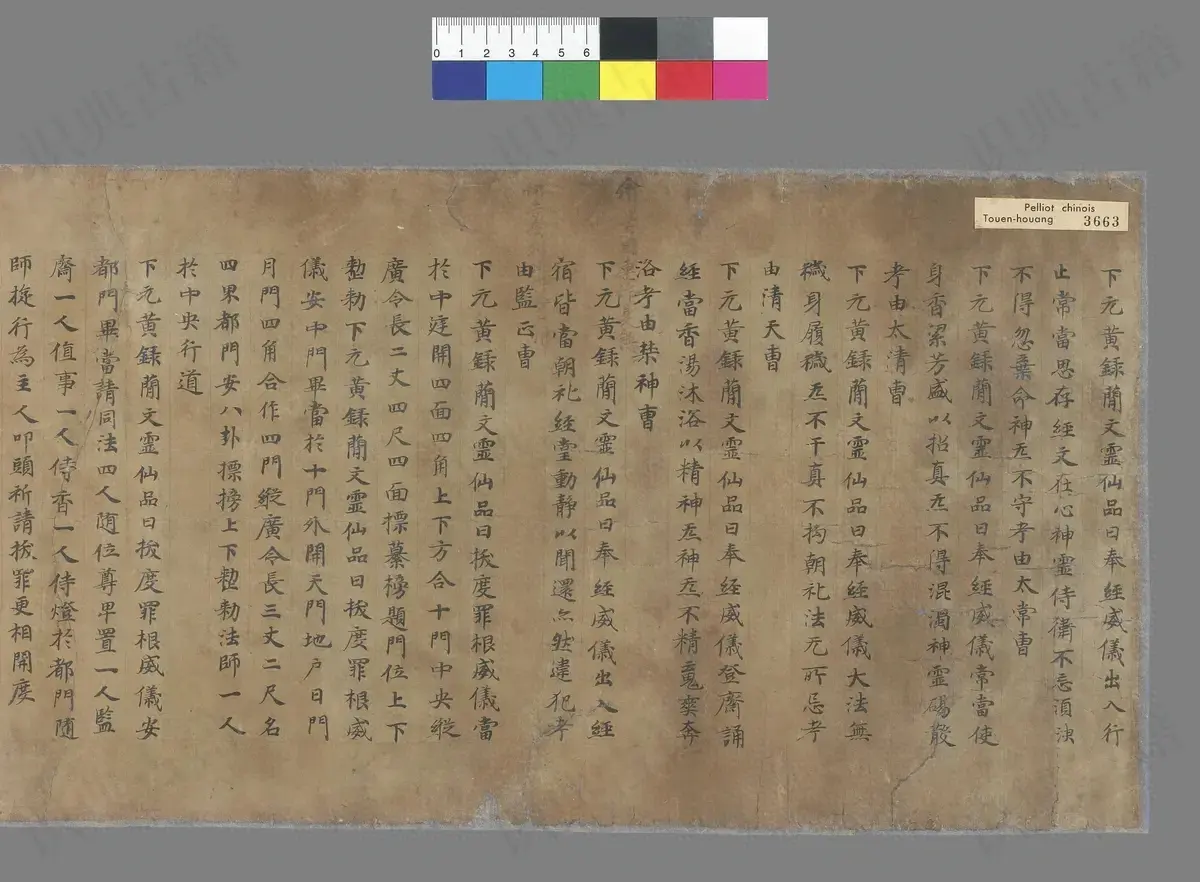 Pelliot chinois
Touen-houang 3663
0 1 2 3 4 5 6
下元黄録蕳文霊仙品曰奉經威儀出入行
止常當思存經文在心神霊侍衛不忘須臾
不得忽棄命神炁不守考由太常曺
下元黄録蕳文霊仙品曰奉經威儀常當使
身香潔芳盛以招真炁不得混濁神霊錫散
考由太清曺
下元黄録蕳文霊仙品曰奉經威儀大法無
穢身履穢炁不干真不拘朝礼法元所忌考
由清天曺
下元黄録蕳文霊仙品曰奉經威儀登齋誦
經當香湯沐浴以精神炁神炁不精䰟爽奔
洛考由禁神曺
下元黄録蕳文霊仙品曰奉經威儀出入經
宿皆當朝礼經堂動静以聞還亦然違犯考
由監正曺
下元黄録蕳文霊仙品曰拔度罪根威儀當
於中庭開四面四角上下方合十門中央縱
廣令長二丈四尺四面摽纂榜題門位上下
懃勑下元黄録蕳文霊仙品曰拔度罪根威
儀安中門畢當於十門外開天門地户日門
月門四角合作四門縱廣令長三丈二尺名
四界都門安八卦摽榜上下懃勑法師一人
於中央行道
下元黄録蕳文霊仙品曰拔度罪根威儀安
都門畢當請同法四人随位尊卑置一人監
齋一人值事一人侍香一人侍燈於都門随
師旋行為主人叩頭祈請拔罪更相開度
識典古籍